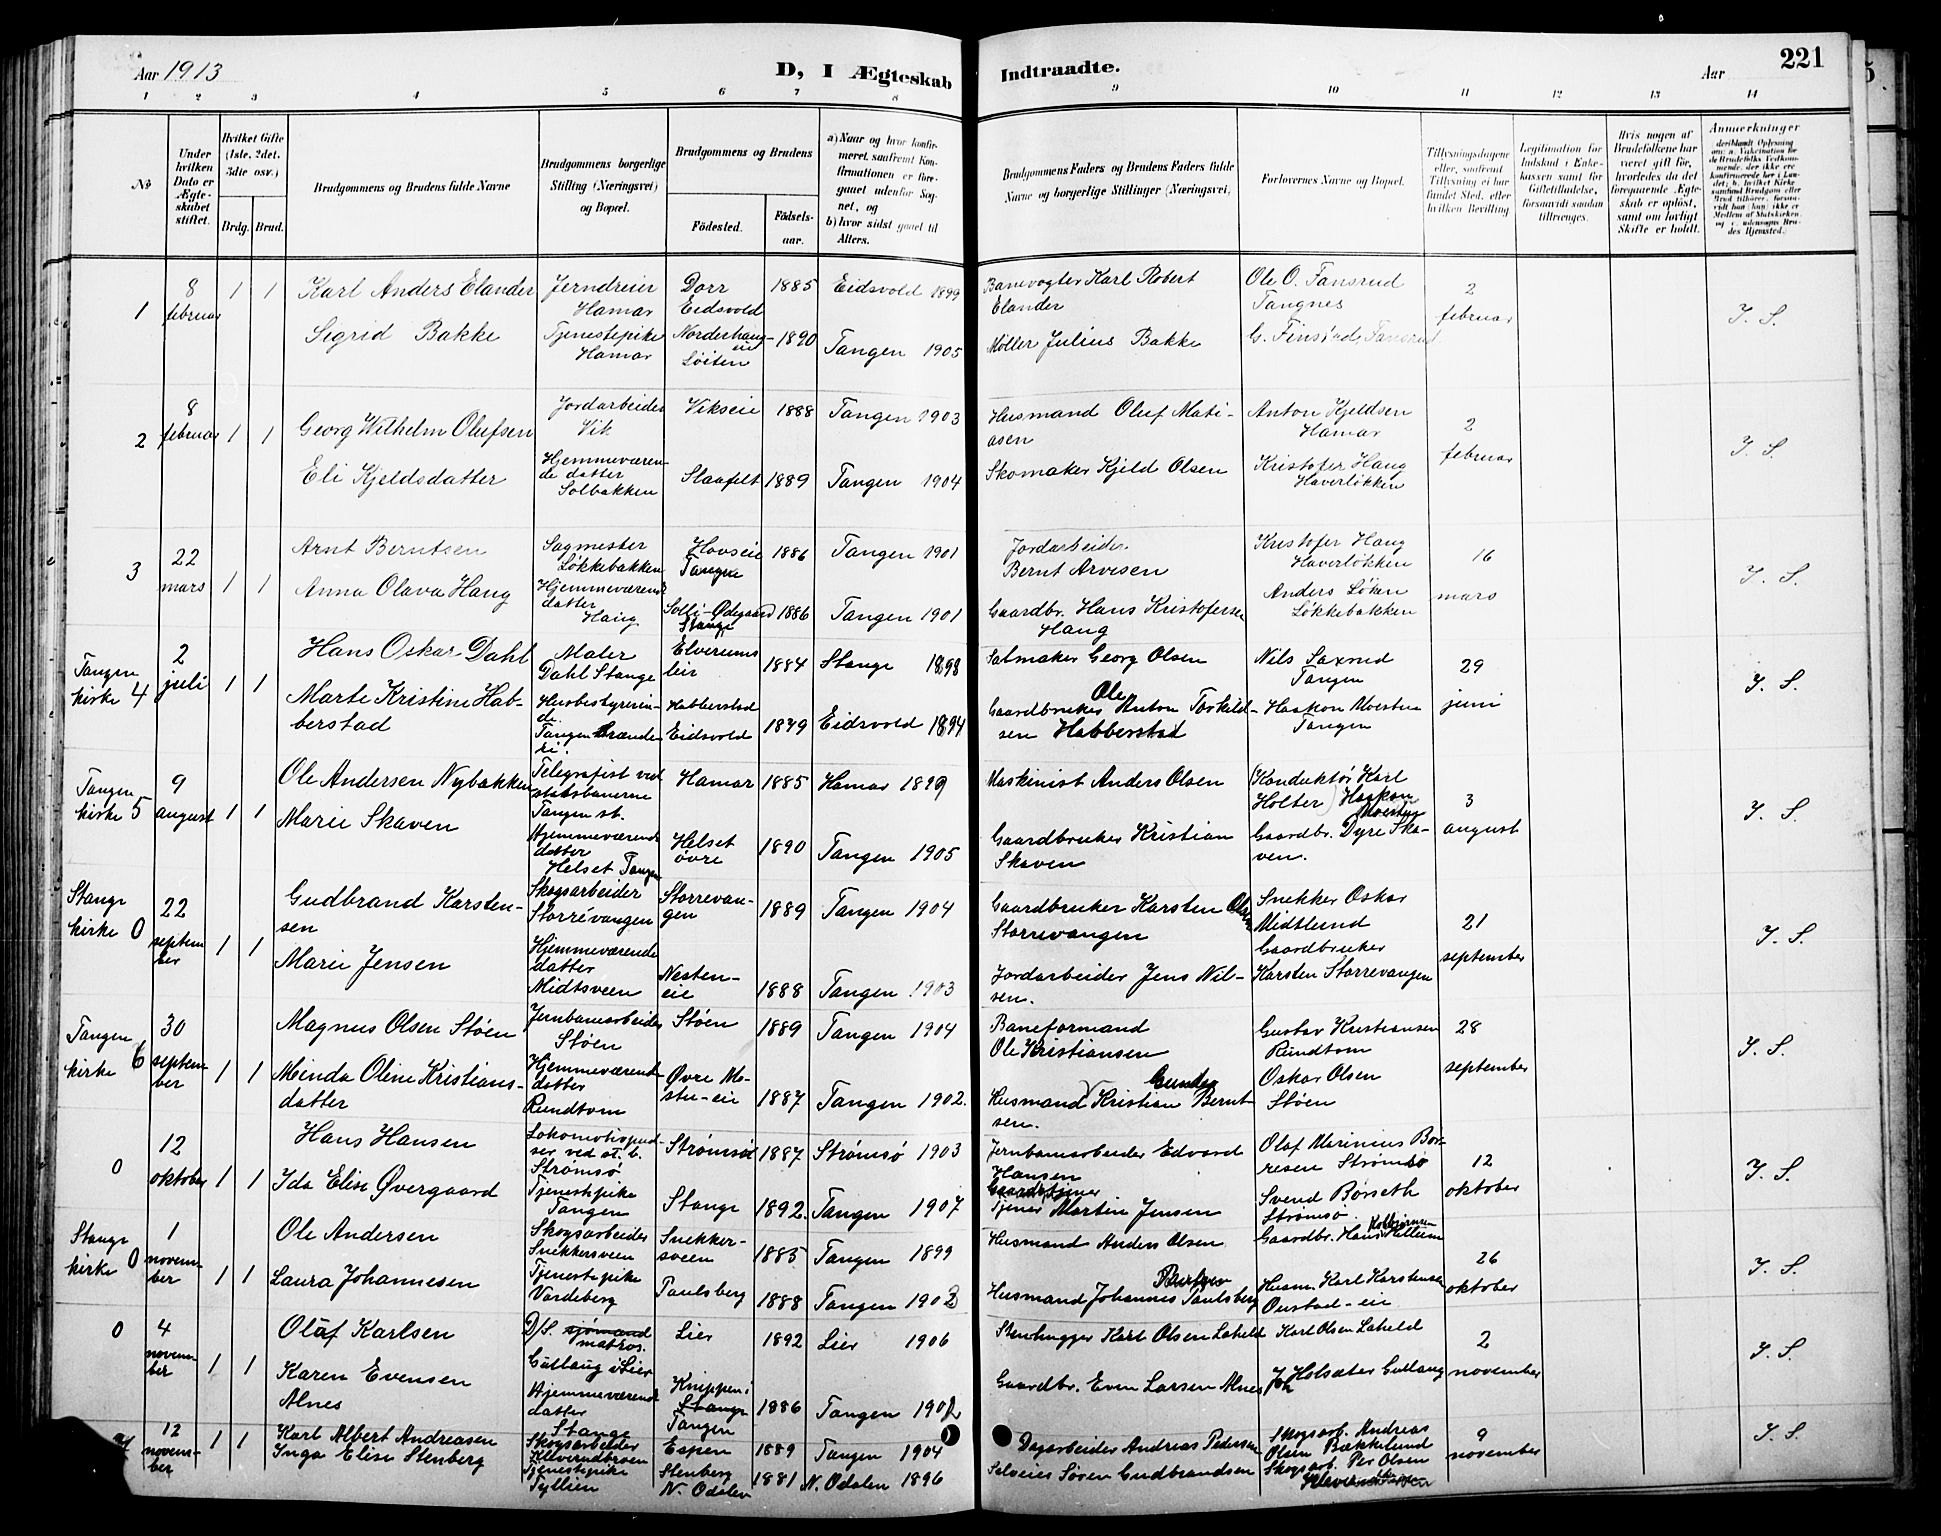 Aar 1913
D, I Ægteskab Indtraadte.
Aar
221
1 2 3 4 5 6 7 8 9 10 11 12 13 14
No
Under hvilken Dato er Ægteskabet stiftet.
Hvilket Gifte (1ste, 2det, 3die osv.)
Brdg. Brud.
Brudgommens og Brudens fulde Navne
Brudgommens borgerlige Stilling (Næringsvei) og Bopæl.
Brudgommens og Brudens
Födested.
Födsels-aar.
a) Naar og hvor konfirmeret, saafremt Konfirmationen er foregaaet udenfor Sognet, og
b) hvor sidst gaaet til Alters.
Brudgommens Faders og Brudens Faders fulde Navne og borgerlige Stillinger (Næringsvei)
Forlovernes Navne og Bopæl.
Tillysningsdagene eller, saafremt Tillysning ei har fundet Sted, efter hvilken Bevilling
Legitimation for Indskud i Enkekassen samt for Giftetilladelse, forsaavidt saadan tiltrænges.
Hvis nogen af Brudefolkene har været gift för, hvorledes da det foregaaende Ægteskab er oplöst, samt om lovligt Skifte er holdt.
Anmerkninger
1
8 februar
1 1
Karl Anders Elander
Jerndreier Hamar
Dorr Eidsvold
1885
Eidsvold 1899
Banevogter Karl Robert Elander
Ole O. Fansrud Tangnes
2 februar
I. S.
Sigrid Bakke
Tjenestepike Hamar
Norderhaug-eie Löiten
1890
Tangen 1905
Møller Julius Bakke
G. Finstad, Fansrud
2
8 februar
1 1
Georg Wilhelm Olufsen
Jordarbeider Vik
Vikseie
1888
Tangen 1903
Husmand Oluf Matiasen
Anton Kjeldsen Hamar
2 februar
I. S.
Eli Kjeldsdatter
Hjemmeværende datter Solbakken
Slaafelt
1889
Tangen 1904
Skomaker Kjeld Olsen
Kristofer Haug Haverløkken
3
22 mars
1 1
Arnt Berntsen
Sagmester Løkkebakken
Hovseie Tangen
1886
Tangen 1901
Jordarbeider Bernt Arvesen
Kristofer Haug Haverløkken
16 mars
I. S.
Anna Olava Haug
Hjemmeværende datter Haug
Solli-Ødegaard Stange
1886
Tangen 1901
Gaardbr. Hans Kristofersen Haug
Anders Löken Løkkebakken
Tangen kirke 4
2 juli
1 1
Hans Oskar Dahl
Maler Dahl Stange
Elverum
1884
Stange 1898
Salmaker Georg Olsen
Nils Saxrud Tangen
29 juni
I. S.
Marte Kristine Habberstad
Husbestyrerinde Tangen Brænderi.
Habberstad Eidsvold
1879
Eidsvold 1894
Gaardbruker Ole Anton Torkildsen Habberstad
Haakon Moestue Tangen
Tangen kirke 5
9 august
1 1
Ole Andersen Nybakken
Telegrafist ved statsbanerne Tangen st.
Hamar
1885
Hamar 1899
Maskinist Anders Olsen
(Konduktør Karl Holter) Haakon Moestue
3 august
I. S.
Marie Skaven
Hjemmeværende datter Helset Tangen
Helset øvre
1890
Tangen 1905
Gaardbruker Kristian Skaven
Gaardbr. Dyre Skaven.
Stange kirke 0
22 september
1 1
Gudbrand Karstensen
Skogsarbeider Storrevangen
Storrevangen
1889
Tangen 1904
Gaardbruker Karsten Olsen Storrevangen
Snekker Oskar Midtlund
21 september
I. S.
Marie Jensen
Hjemmeværende datter Midtsveen
Nesteneie
1888
Tangen 1903
Jordarbeider Jens Nilsen.
Gaardbruker Karsten Storrevangen
Tangen kirke 6
30 september
1 1
Magnus Olsen Støen
Jernbanearbeider Støen
Støen
1889
Tangen 1904
Baneformand Ole Kristiansen
Gustav Kristiansen Rundtom
28 september
I. S.
Minda Oline Kristiansdatter
Hjemmeværende datter Rundtom
Øvre Mostu-eie
1887
Tangen 1902.
Husmand Gunder Kristian Berntsen.
Oskar Olsen Støen
0
12 oktober
1 1
Hans Hansen
Lokomotivpudser ved st. b. Strømsø
Strømsø
1887
Strømsø 1903
Jernbanearbeider Edvard Hansen
Olaf Marinius Borresen Strømsø
12 oktober
I. S.
Ida Elise Øvergaard
Tjenestepike Tangen
Stange
1892.
Tangen 1907
Tjener Martin Jensen
Svend Børseth Strømsø.
Stange kirke 0
1 november
1 1
Ole Andersen
Skogsarbeider Snekkersveen
Snekkersveen
1885
Tangen 1899
Husmand Anders Olsen
Gaardbr. Hans Kolbjørnsen Hillum
26 oktober
I. S.
Laura Johannesen
Tjenestepike Vardeberg
Paulsberg
1888
Tangen 1903
Husmand Johannes Paulsberg
Husm. Karl Karstensen Oustad-eie
0
4 november
1 1
Olaf Karlsen
D/S. sjømand matros. Gullaug i Lier
Lier
1892
Lier 1906
Stenhugger Karl Olsen Laheld
Karl Olsen Laheld
2 november
I. S.
Karen Evensen Alnes
Hjemmeværende datter Stange
Knippen i Stange Tangen
1886
Tangen 1902
Gaardbr. Even Larsen Alnes
Joh Holsæter Gullaug
7
12 november
1 1
Karl Albert Andreasen
Skogsarbeider Kleverudbroen
Espen
1889
Tangen 1904
Dagarbeider Andreas Pedersen
Skogsarb. Andreas Olsen Bækkelund
9 november
I. S.
Inga Elise Stenberg
Tjenestepike Tyllien
Stenberg N. Odalen
1881
N. Odalen 1896
Selveier Søren Gudbrandsen
Skogsarb. Per Olsen